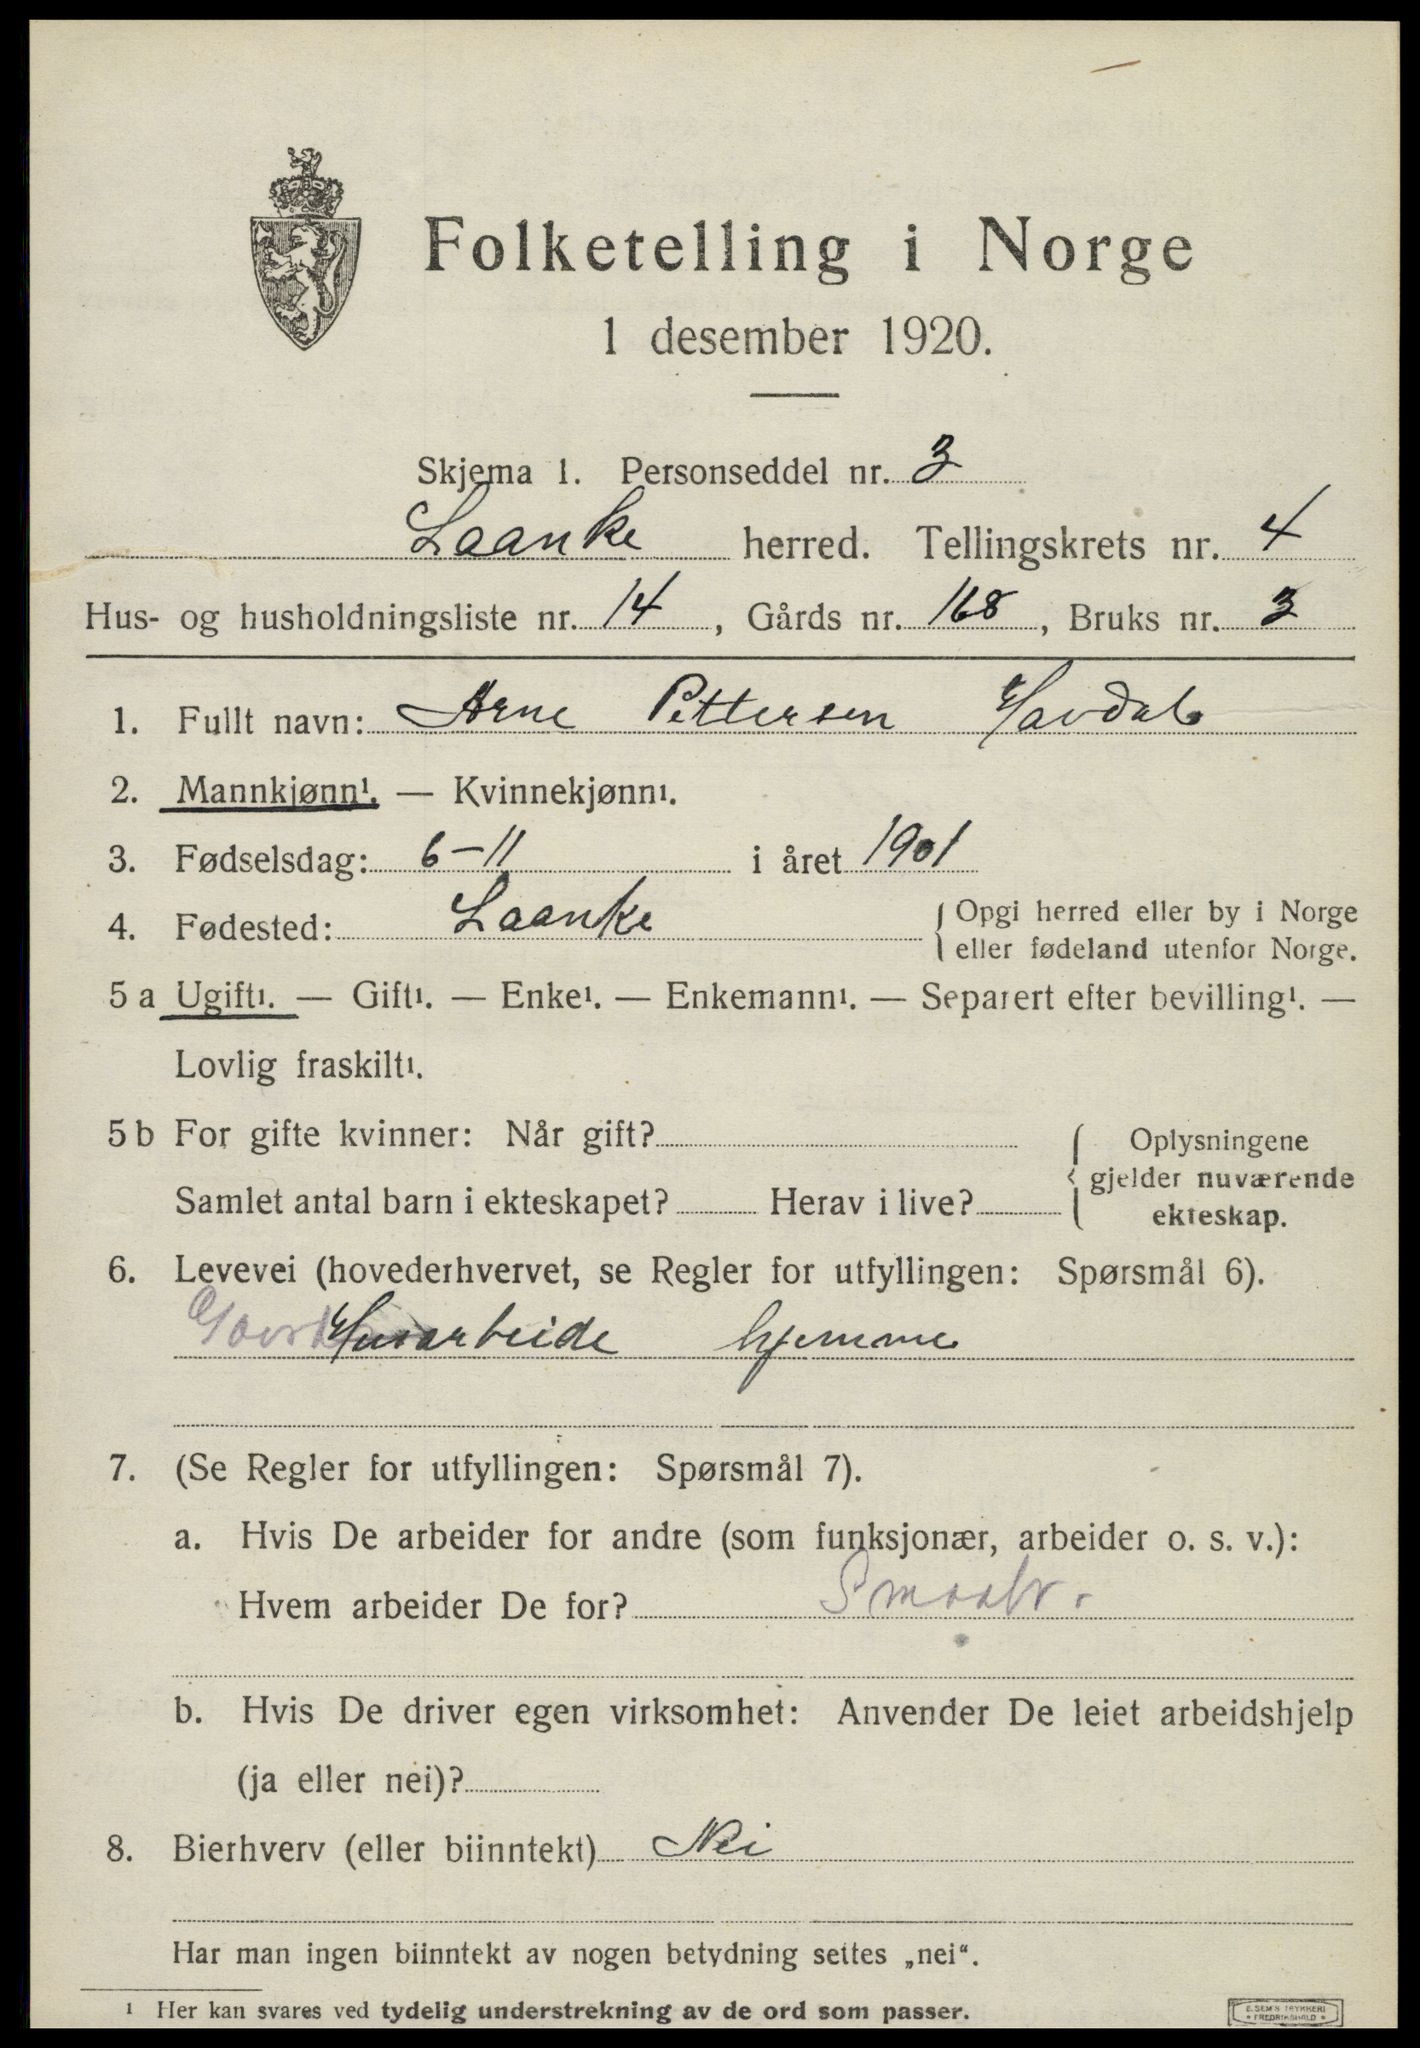 Folketelling i Norge
1 desember 1920.
Skjema 1. Personseddel nr. 3
Laanke herred. Tellingskrets nr. 4
Hus- og husholdningsliste nr. 14, Gårds nr. 168, Bruks nr. 3
1. Fullt navn: Arne Pettersen Havdal
2. Mannkjønn¹. — Kvinnekjønn¹.
3. Fødselsdag: 6-11 i året 1901
4. Fødested: Laanke { Opgi herred eller by i Norge
eller fødeland utenfor Norge.
5 a Ugift¹. — Gift¹. — Enke¹. — Enkemann¹. — Separert efter bevilling¹. —
Lovlig fraskilt¹.
5 b For gifte kvinner: Når gift?
Samlet antal barn i ekteskapet? Herav i live?
{ Oplysningene
gjelder nuværende
ekteskap.
6. Levevei (hovederhvervet, se Regler for utfyllingen: Spørsmål 6).
Husarbeide hjemme
7. (Se Regler for utfyllingen: Spørsmål 7).
a. Hvis De arbeider for andre (som funksjonær, arbeider o. s. v.):
Hvem arbeider De for? Smaabr.
b. Hvis De driver egen virksomhet: Anvender De leiet arbeidshjelp
(ja eller nei)?
8. Bierhverv (eller biinntekt) Nei
Har man ingen biinntekt av nogen betydning settes „nei“.
¹ Her kan svares ved tydelig understrekning av de ord som passer.
E. SEM'S TRYKKERI
FREDRIKSHALD